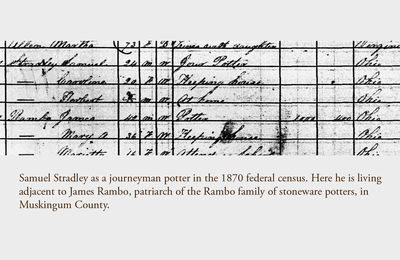 Allen Martha 73 F W Lives with daughter Virginia
Stradley Samuel 24 m W Jour Potter Ohio
— Caroline 20 F W Keeping house Ohio
— m W At home Ohio
Rambo James 40 m W Potter 1000 400 Ohio
— Mary A 36 F W Keeping house Ohio
F W Ohio
Samuel Stradley as a journeyman potter in the 1870 federal census. Here he is living
adjacent to James Rambo, patriarch of the Rambo family of stoneware potters, in
Muskingum County.